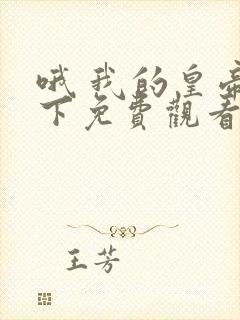 哦 我的皇帝
下免費觀看
王芳